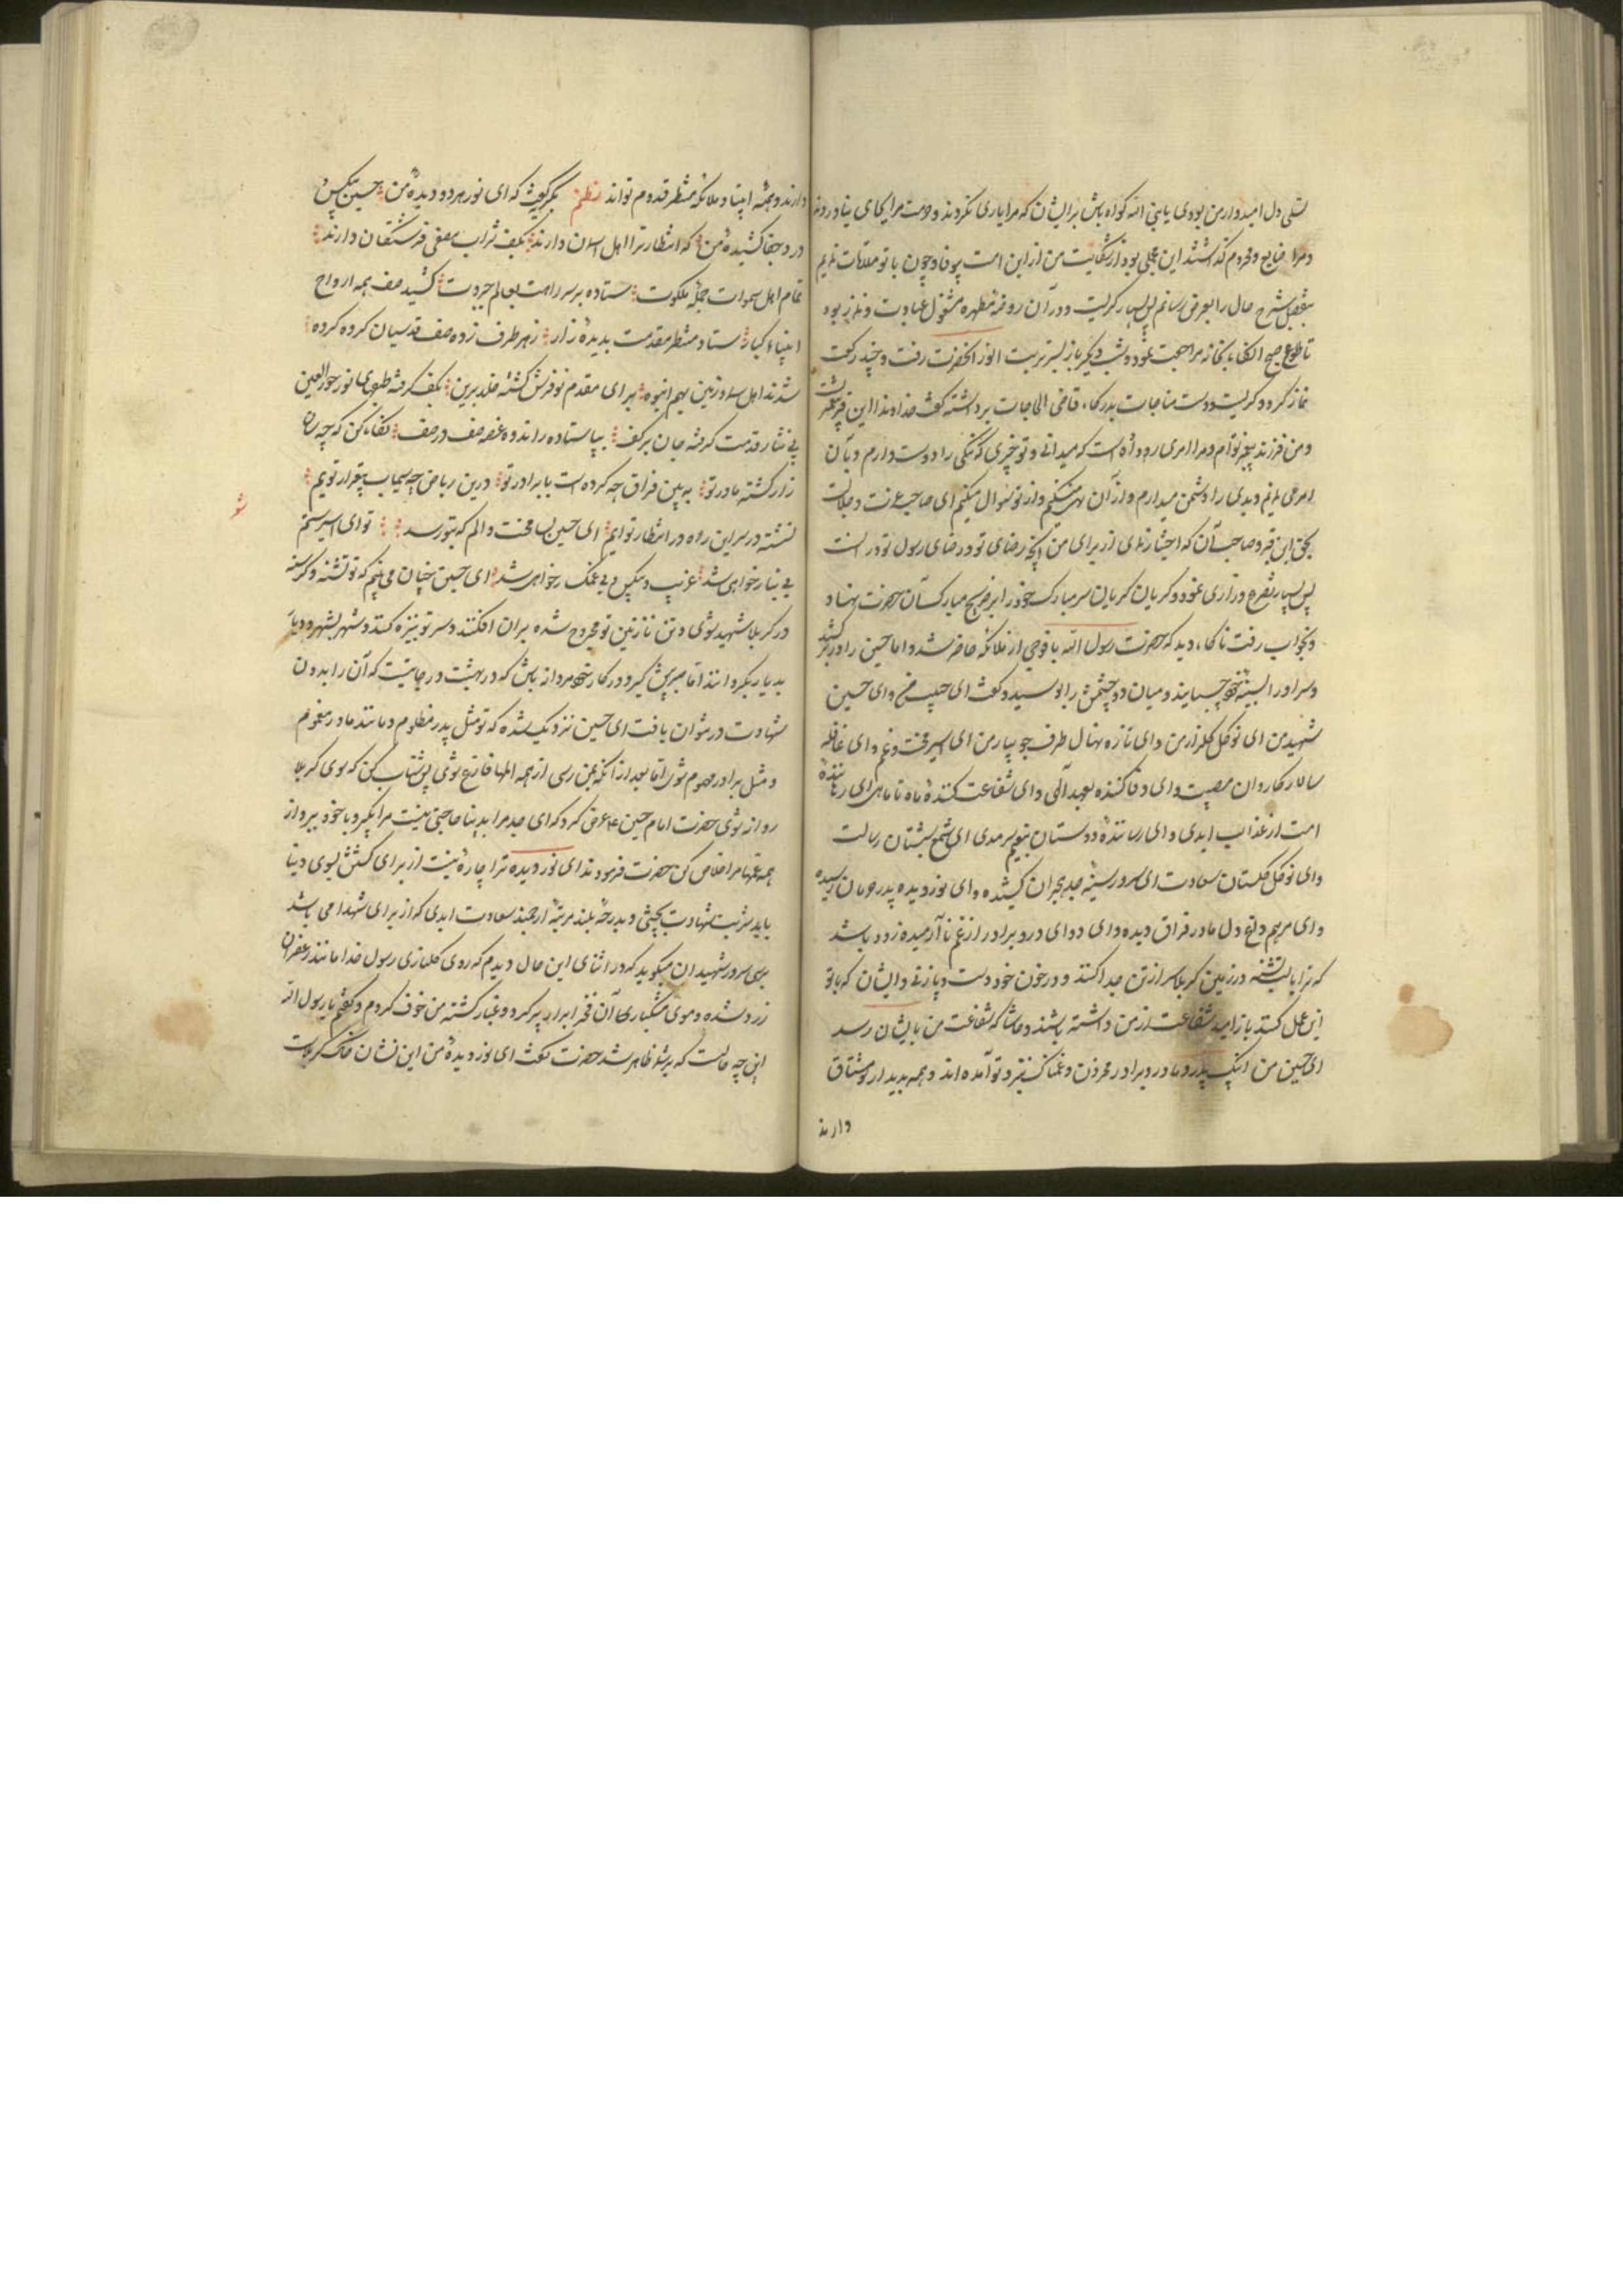 تسلی دل امیدوار من بودی یا بنی الله کواه باش برایشان که مرا یاری نکردند و حرمت مرا بجای نیاوردند
و مرا ضایع و محروم گذاشتند این مجملی بود از شکایت من ازین امت بیوفا و چون با تو ملاقات نمایم
بتفصیل شرح حال را بعرض رسانم پس بسیار گریست و در آن روضه مطهره مشغول عبادت و نماز بود
تا طلوع صبح انگاه بخانه مراجعت نمود و شب دیگر باز بسر تربت انور انحضرت رفت و چند رکعت
نماز کرد و گریست و دست مناجات بدرگاه قاضی الحاجات برداشته گفت خداوندا این قبر پیغمبر تست
و من فرزند پیغمبر توام و مرا امری رو داده است که میدانی و تو خبری که نیکی را دوست دارم و بآن
امر می نمایم و بدی را دشمن میدارم و از آن نهی میکنم و از تو سوال میکنم ای صاحب عزت و جلالت
بحق این قبر و صاحب آن که اختیار نمای از برای من آنچه رضای تو و رضای رسول تو در انست
پس بسیار تضرع و زاری نمود و گریان گریان سر مبارک خود را بر ضریح مبارک آن حضرت نهاد
و بخواب رفت ناگاه دید که حضرت رسول الله با فوجی از ملائکه حاضر شد و امام حسین را در بر کشید
و سر او را بسینه خود چسپانید و میان دو چشمش را بوسید و گفت ای حبیب من و ای حسین
شهید من ای نوگل گلزار من و ای تازه نهال طرف جویبار من ای اسیر محنت و غم و ای قافله
سالار کاروان مصیبت و ای وفا کننده بعهد الهی و ای شفاعت کننده ماه تا ماهی ای رهاننده
امت از عذاب ابدی و ای رساننده دوستان بنعیم سرمدی ای شمع شبستان رسالت
و ای نوگل گلستان سعادت ای سرور سینه جد هجران کشیده و ای نور دیده پدر حرمان رسیده
و ای مرهم داغ دل مادر فراق دیده و ای دوای درد برادر از غم نا آرمیده زود باشد
که ترا با لب تشنه در زمین کربلا سر از تن جدا کنند و در خون خود دست و پا زنی و ایشان که با تو
این عمل کنند باز امید شفاعت از من داشته باشند و حاشا که شفاعت من بایشان رسد
ای حسین من اینک پدر و مادر و برادر محزون و غمناک نزد تو آمده اند و همه بدیدار تو مشتاق
دارند
دارند و همه انبیا و ملائکه منتظر قدوم تواند نظم بگریه گفت که ای نور هر دو دیده من حسین بیکس و
درد و جفا کشیده من که انتظار ترا اهل اسمان دارند بکف شراب مصفی فرشتگان دارند
تمام اهل سموات جمله ملکوت ستاده بر سر راهت بعالم جبروت کشید صف همه ارواح
انبیاء کبار ستاد منتظر مقدمت بدیده زار ز هر طرف زده صف قدسیان گروه گروه
شدند اهل سما و زمین بهم انبوه برای مقدم تو فرش گشته خلد برین بکف گرفته طبقهای نور حور العین
پی نثار قدمت گرفته جان بر کف بپا ستاده ز اندوه غصه صف در صف نگاه کن که چه سان
زار گشته مادر تو به بین فراق چه کرده است با برادر تو درین ریاض چه سیماب بیقرار توییم
نشسته در سر این راه در انتظار توایم ای حسین بسا محنت و الم که بتو رسد توای اسیر ستم
بی نیاز خواهی شد غریب و بیکس و بی غمگسار خواهی شد ای حسین چنان می بینم که تو تشنه و گرسنه
در کربلا شهید شوی و تن نازنین تو مجروح شده بران افکنند و سر تو بنیزه کنند و شهر بشهر و دیار
بدیار بگردانند اما صبر پیش گیر و در کار خود مردانه باش که در بهشت درجاتیست که آن را بدون
شهادت در نتوان یافت ای حسین نزدیک شده که تو مثل پدر مظلوم و مانند مادر مغموم
و مثل برادر مهموم شوی اما بعد از انکه بمن رسی از همه المها فارغ شوی پس شتاب کن که بسوی کربلا
روانه شوی حضرت امام حسین ع عرض کرد که ای جد مرا بدنیا حاجتی نیست مرا بگیر و با خود ببر و از
همه غمها مرا خلاص کن حضرت فرمودند ای نور دیده ترا چاره نیست از برگشتن بسوی دنیا
باید شربت شهادت بچشی و بدرجه بلند مرتبه ارجمند سعادت ابدی که از برای شهدا می باشد
برسی سرور شهیدان میگوید که در اثنای این حال دیدم که روی گلناری رسول خدا مانند زعفران
زرد شده و موی مشکباری آن فخر ابرار پر گرد و غبار گشته من خوف کردم و گفتم یا رسول الله
این چه حالیست که بر شما ظاهر شد حضرت گفت ای نور دیده من این نشان خاک کربلاست